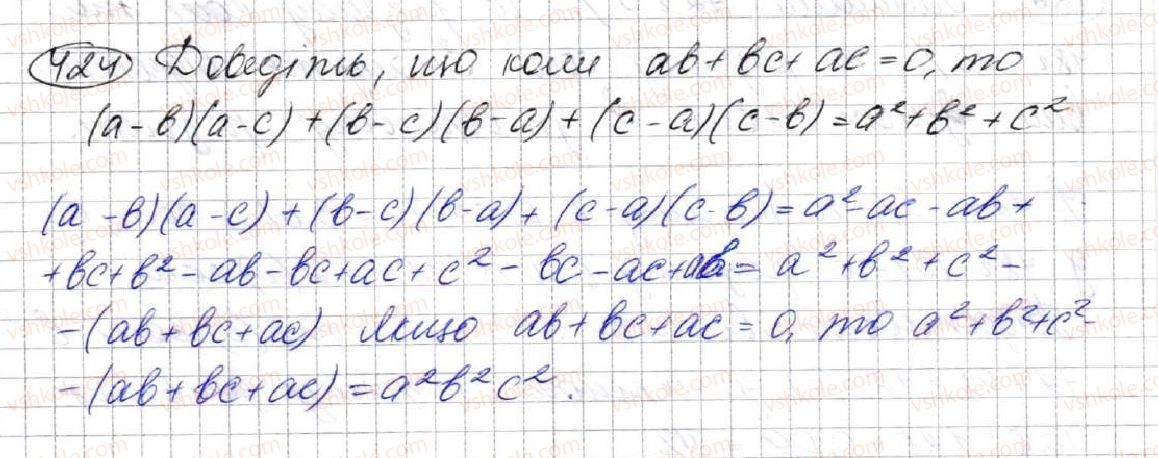 424 Доведіть, що коли ab + bc + ac = 0, то
(a - b)(a - c) + (b - c)(b - a) + (c - a)(c - b) = a² + b² + c²
(a - b)(a - c) + (b - c)(b - a) + (c - a)(c - b) = a² - ac - ab +
+ bc + b² - ab - bc + ac + c² - bc - ac + ab = a² + b² + c² -
- (ab + bc + ac) Якщо ab + bc + ac = 0, то a² + b² + c² -
- (ab + bc + ac) = a² b² c².